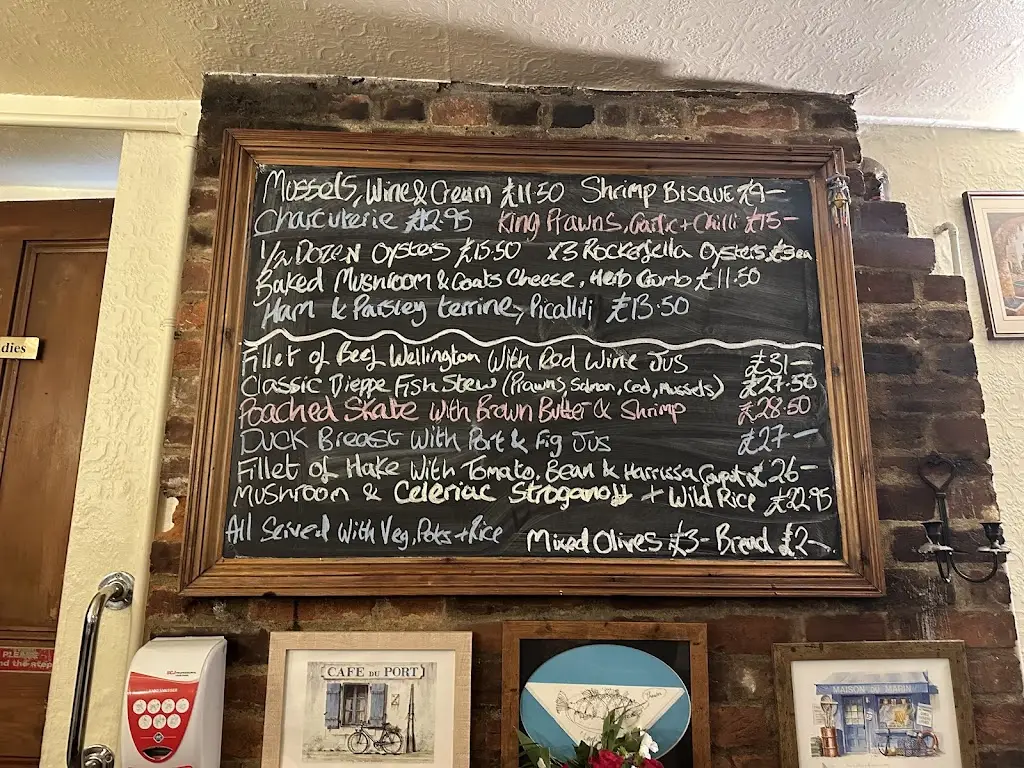 Mussels, Wine & Cream £11.50 Shrimp Bisque £9-
Charcuterie £12.95 King Prawns, Garlic + Chilli £15-
1/2 Dozen Oysters £15.50 x3 Rockefella Oysters £3ea
Baked Mushroom & Goats Cheese, Herb Crumb £11.50
Ham & Parsley terrine, Picallili £13.50
Fillet of Beef Wellington With Red Wine Jus £31-
Classic Dieppe Fish Stew (Prawns, Salmon, Cod, Mussels) £27.50
Poached Skate With Brown Butter & Shrimp £28.50
Duck Breast With Port & Fig Jus £27-
Fillet of Hake With Tomato, Bean & Harrissa £26-
Mushroom & Celeriac Stroganoff + Wild Rice £22.95
All Served With Veg, Pots + Rice Mixed Olives £3- Bread £2-
dies
PLEASE
nd the step
CAFE DU PORT
MAISON DU MARIN